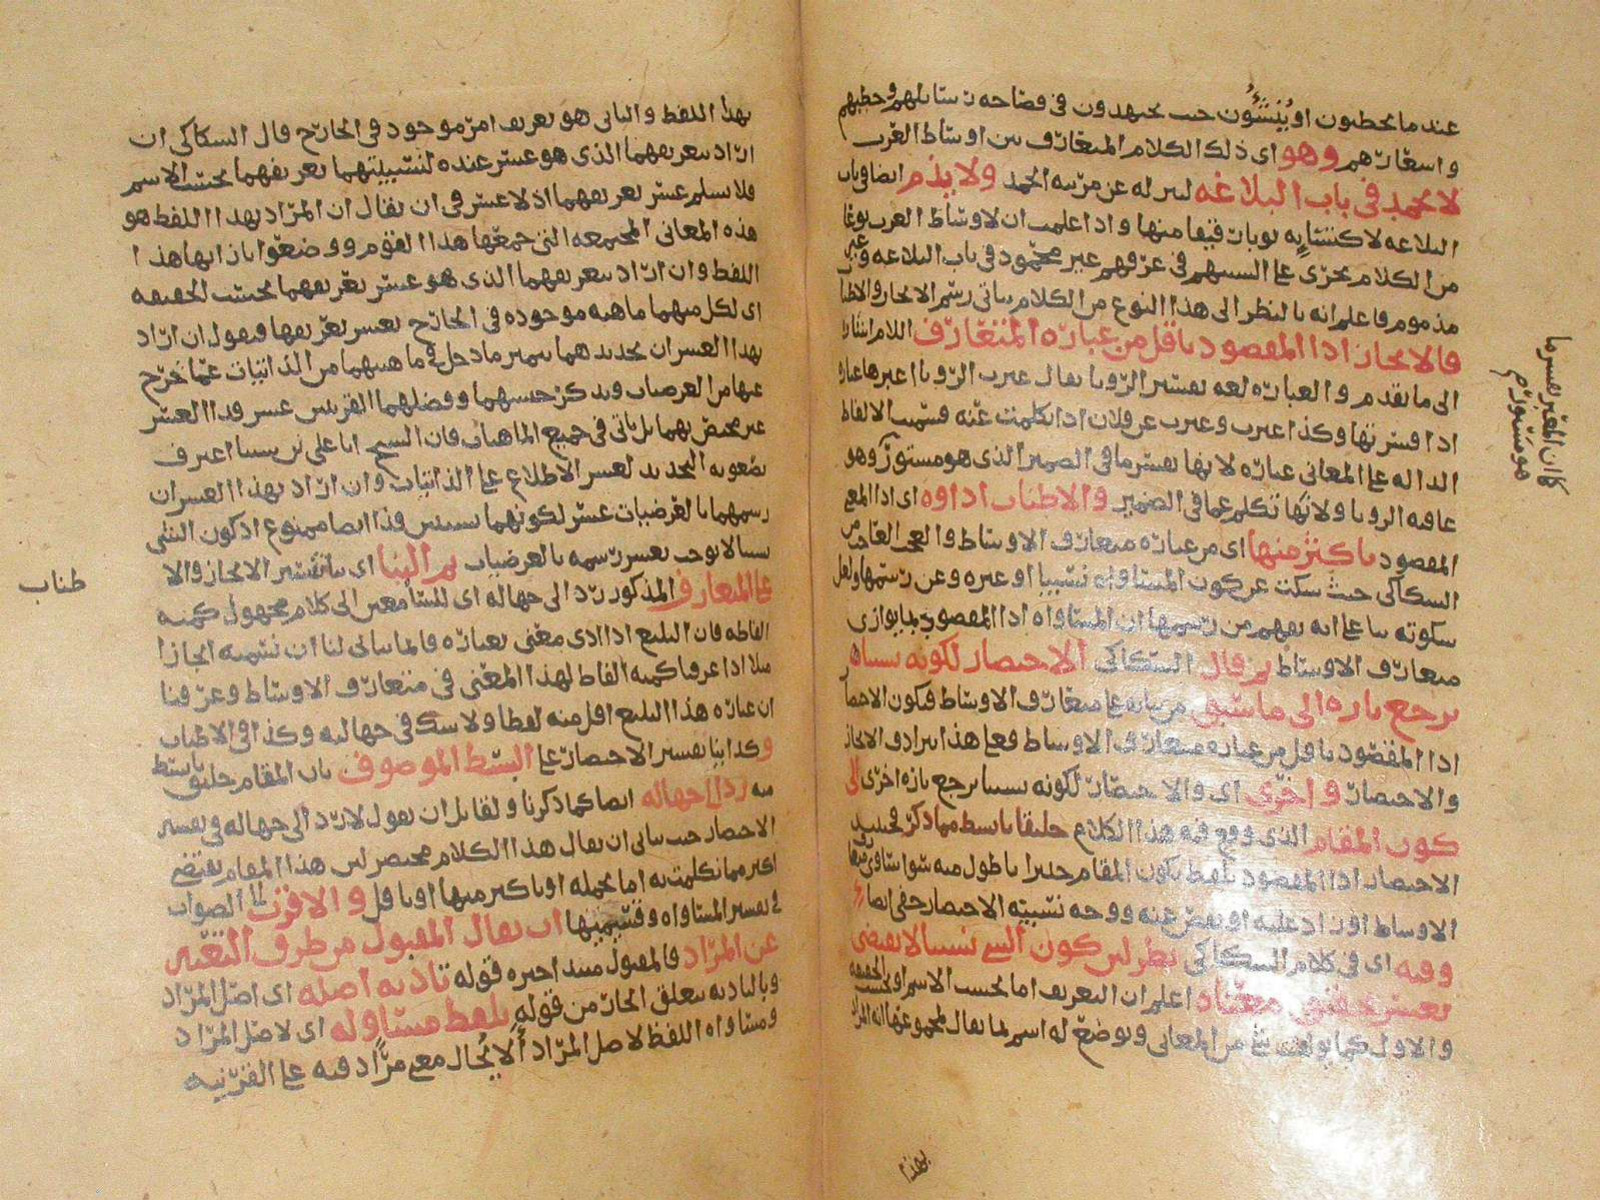 عند ما يخطبون او يُنشئُون حيث يجتهدون في فصاحة رسائلهم وخطبهم
واشعارهم وهو اى ذلك الكلام المتعارف بين اوساط العرب
لا يحمد في باب البلاغة ليس له عن مرتبة الحمد ولا يذم ايضا في باب
البلاغة لاكتسابه منها واذا علمت ان لاوساط العرب نوعا
من الكلام يجرى على السنتهم في عرفهم غير محمود في باب البلاغة وغير
مذموم فاعلم انه بالنظر الى هذا النوع من الكلام ياتى رسم الايجاز والاطنا
فالايجاز اداء المقصود باقل من عبارة المتعارف اللام اشارة
الى ما تقدم والعبارة لغة تفسير الرؤيا يقال عبرت الرؤيا اعبرها عبارة
اذا فسرتها وكذا عبرت وعبرت عن فلان اذا تكلمت عنه فسميت الالفاظ
الدالة على المعانى عبارة لانها تفسر ما في الضمير الذى هو مستور وهو
عاقبة الرؤيا ولانها تكلم عما في الضمير والاطناب اداؤه اى اداء المع
المقصود باكثر منها اى من عبارة متعارف الاوساط والعجب
السكاكى حيث سكت عن كون المساواة نسبيا او غيره وعن رسمها ولعل
سكوته بنا على انه يفهم من رسمها ان المساواة اداء المقصود بما يوازى
متعارف الاوساط ثم قال السكاكى الاختصار لكونه نسبيا
يرجع تارة الى ما سبق من بنائه على متعارف الاوساط فيكون الاختصا
اداء المقصود باقل من عبارة متعارف الاوساط فعلى هذا يرادف الايجاز
والاختصار واخرى اى والاختصار لكونه نسبيا يرجع تارة اخرى الى
كون المقام الذى وقع فيه هذا الكلام خليقا بابسط مما ذكر فحينئذ
الاختصار اداء المقصود بلفظ يكون المقام جديرا باطول منه سواء ساوى
الاوساط او زاد عليه او نقص عنه ووجه تسميته الاختصار خفى ايضا
وفيه اى في كلام السكاكى نظر لان كون الشى نسبيا لا يقتضى
تعسر تحقيق معناه اعلم ان التعريف اما بحسب الاسم او بحسب الحقيقة
والاول كما يؤلف شى من المعانى ويوضع له اسم ثم يقال لمجموعها انه المراد
بهذا
كان المعبر يفسر ما
هو مستور
بهذا اللفظ والثانى هو تعريف امر موجود في الخارج قال السكاكى ان
اراد بتعريفهما الذى هو عسر عنده لنسبيتهما تعريفهما بحسب الاسم
فلا نسلم عسر تعريفهما اذ لا عسر في ان يقال ان المراد بهذا اللفظ هو
هذه المعانى المجتمعة التى جمعها هذا القوم ووضعوا بازائها هذا
اللفظ وان اراد بتعريفهما الذى هو عسر تعريفهما بحسب الحقيقة
اى لكل منهما ماهية موجودة في الخارج يعسر تعريفها فنقول ان اراد
بهذا العسر ان تحديدهما بتمييز ما دخل في ماهيتهما من الذاتيات عما خرج
عنها من العرضيات وبذكر جنسهما وفصلهما القريبين عسر فذا العسر
غير مختص بهما بل ياتى في جميع الماهيات فان الشيخ ابا على بن سينا اعترف
بصعوبة التحديد لعسر الاطلاع على الذاتيات وان اراد بهذا العسر ان
رسمهما بالعرضيات عسر لكونهما نسبيين فذا ايضا ممنوع اذ كون الشى
نسبيا لا يوجب تعسر رسمه بالعرضيات ثم البنا اى بناء تفسير الايجاز والا
على المتعارف المذكور رد الى جهالة اى للسامعين الى كلام مجهول كمية
الفاظه فان البليغ اذا ادى معنى بعبارة فانما يتاتى لنا ان نسميه ايجازا
مثلا اذا عرفنا كمية الفاظ لهذا المعنى في متعارف الاوساط وعرفنا
ان عبارة هذا البليغ اقل منه لفظا ولا شك في جهالته وكذا في الاطناب
وكذا بنا تفسير الاختصار على البسط الموصوف بان المقام خليق بابسط
منه رد الى جهالة ايضا كما ذكرنا ولقائل ان يقول لا رد الى جهالة في تفسير
الاختصار حيث يتاتى ان يقال هذا الكلام مختصر لان هذا المقام يقتضى
اكثر مما تكلمت به اما بجملة او باكثر منها او باقل والاقرب الى الصواب
في تفسير المساواة وقسيميها ان يقال المقبول من طرف التعبير
عن المراد فالمقبول مبتدا خبره قوله تادية اصله اى اصل المراد
وبالتادية يتعلق الجار من قوله بلفظ مساو له اى لاصل المراد
ومساواة اللفظ لاصل المراد الا يحال معنى مراد فيه على القرينة
طناب